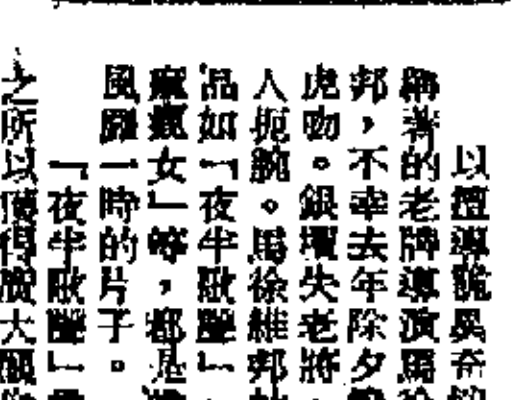 以擅導詭異奇
稱著的老牌導演馬徐
邦，不幸去年除夕
虎吻。銀壇失老將，
人扼腕。馬徐維邦
品如「夜半歌聲」、
瘋女」等，都是
風靡一時的片子。
「夜半歌聲」
之所以獲得廣大觀